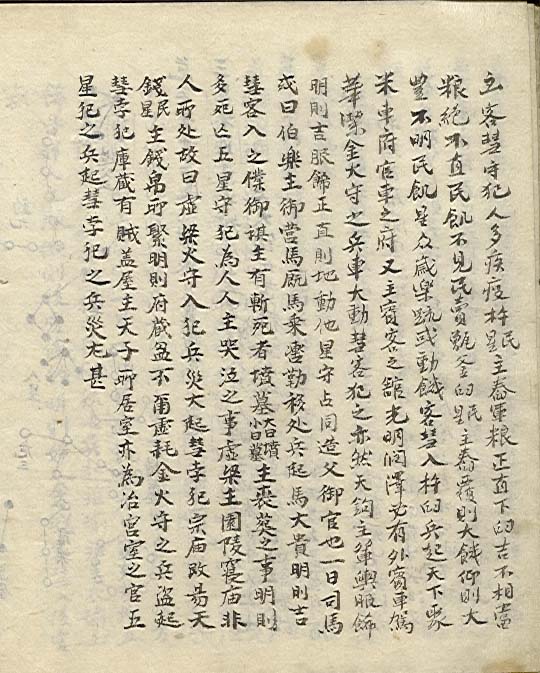 立客彗守犯人多疾疫杵民星主舂軍粮正直下臼吉不相當
粮絕不直民飢不見民賣甑釜臼民星主舂覆則大餓仰則大
豊不明民飢星众歲樂疏或動餓客彗入杵臼兵起天下聚
米車府官車之府又主賓客之舘光明润澤必有外賓車駕
華潔金火守之兵車大動彗客犯之亦然天鈎主輦輿服飾
明則吉服飾正直則地動他星守占同造父御官也一曰司馬
或曰伯樂主御営馬厩馬乘轡勒移处兵起馬大貴明則吉
彗客入之僕御棋主有斬死者墳墓大曰墳小曰墓主喪葬之事明則
多死亡五星守犯為人人主哭泣之事虚梁主園陵寝庙非
人所处故曰虚梁火守入犯兵災大起彗孛犯宗庙改易天
錢民星主錢帛所聚明則府藏盈不爾虚耗金火守之兵盗起
彗孛犯庫藏有賊盖屋主天子所居室亦為冶宮室之官五
星犯之兵起彗孛犯之兵災尤甚